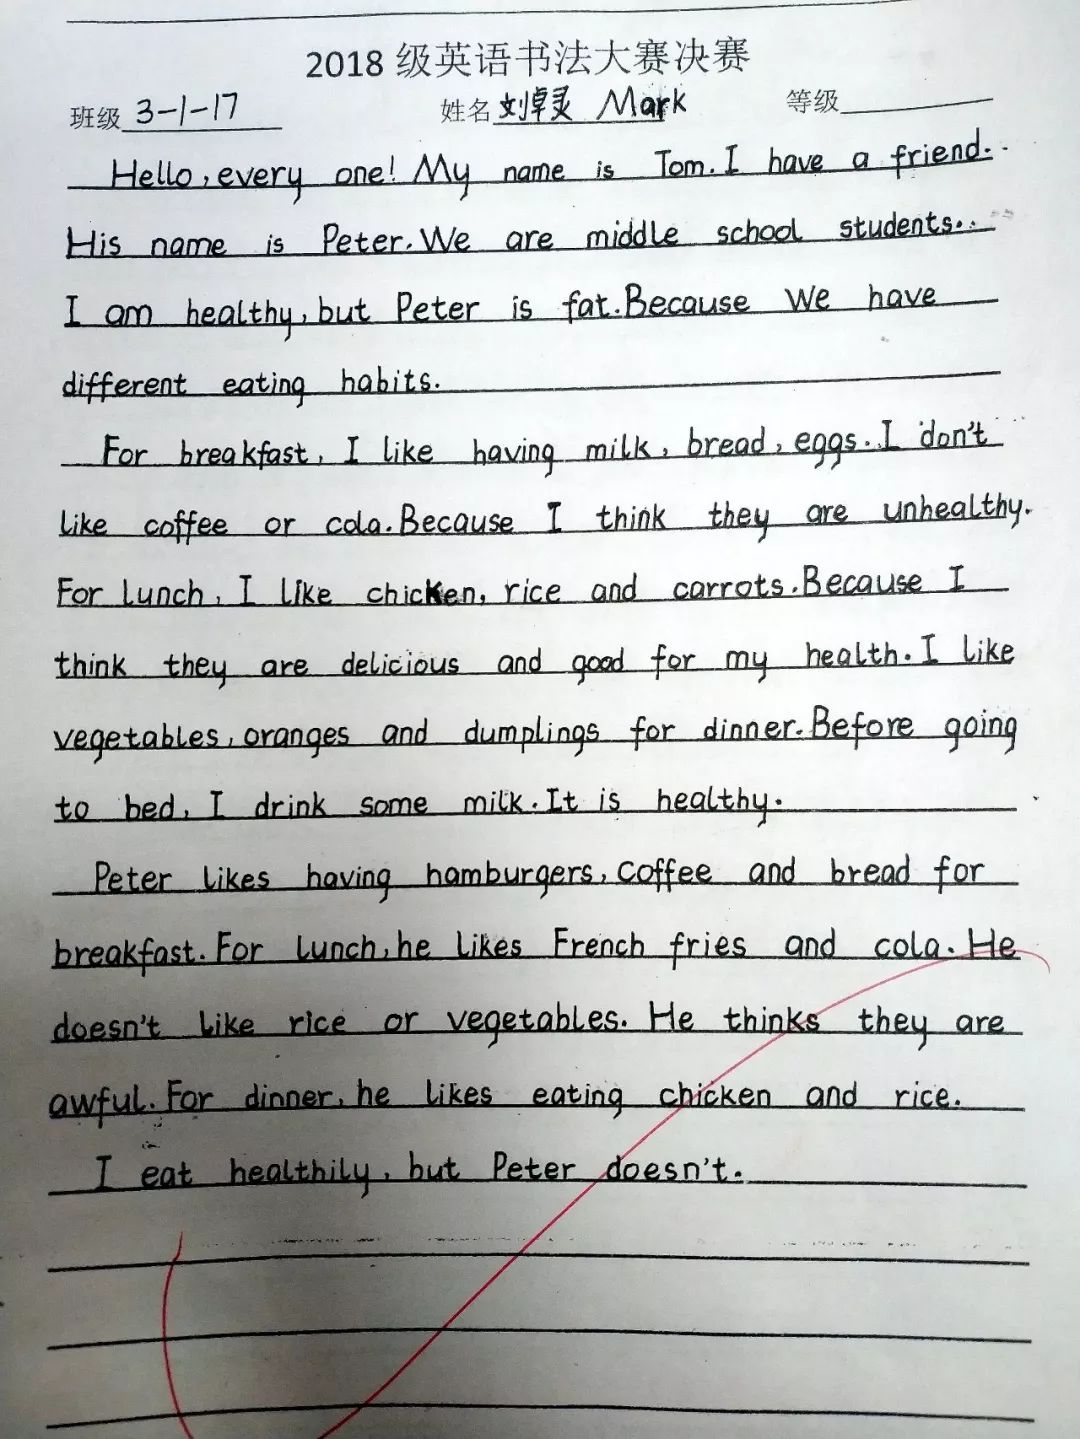 2018 级英语书法大赛决赛
班级 3-1-17 姓名 刘卓灵 Mark 等级
Hello, every one! My name is Tom. I have a friend.
His name is Peter. We are middle school students.
I am healthy, but Peter is fat. Because We have
different eating habits.
For breakfast, I like having milk, bread, eggs. I don't
like coffee or cola. Because I think they are unhealthy.
For lunch, I like chicken, rice and carrots. Because I
think they are delicious and good for my health. I like
vegetables, oranges and dumplings for dinner. Before going
to bed, I drink some milk. It is healthy.
Peter likes having hamburgers, coffee and bread for
breakfast. For lunch, he likes French fries and cola. He
doesn't like rice or vegetables. He thinks they are
awful. For dinner, he likes eating chicken and rice.
I eat healthily, but Peter doesn't.